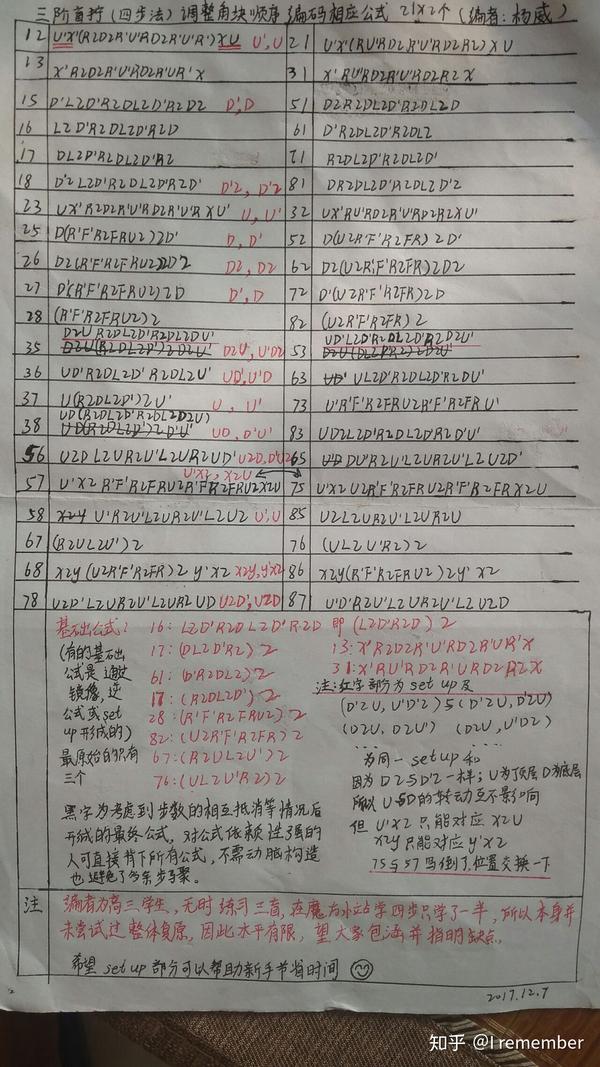 三阶盲拧(四步法)调整角块顺序编码相应公式 21x2个(编者:杨威)
12 U'X'(R2D2R'U'RD2R'U'R')XU U',U 21 U'X'(RU'RD2R'U'RD2R2)XU
13 X'R2D2R'U'RD2R'UR'X 31 X'RU'RD2R'U'RD2R2X
15 D'L2D'R2DL2D'R2D2 D',D 51 D2R2DL2D'R2DL2D
16 L2D'R2DL2D'R2D 61 D'R2DL2D'R2DL2
17 DL2D'R2DL2D'R2 71 R2DL2D'R2DL2D'
18 D'2L2D'R2DL2D'R2D' D'2,D'2 81 DR2DL2D'R2DL2D'2
23 UX'R2D2R'U'RD2R'U'RXU' U,U' 32 UX'RU'RD2R'U'RD2R2XU'
25 D(R'F'R2FRU2)2D' D,D' 52 D(U2R'F'R2FR)2D'
26 D2(R'F'R2FRU2)2D2 D2,D2 62 D2(U2R'F'R2FR)2D2
27 D'(R'F'R2FRU2)2D D',D 72 D'(U2R'F'R2FR)2D
28 (R'F'R2FRU2)2 82 (U2R'F'R2FR)2
35 D2UR2DL2D'R2DL2DU' D2U',U'D2 53 UD'L2D'R2DL2D'R2D2U'
36 UD'R2DL2D'R2DL2U' UD',U'D 63 UL2D'R2DL2D'R2DU'
37 U(R2DL2D')2U' U,U' 73 U'R'F'R2FRU2R'F'R2FRU'
38 UD(R2DL2D'R2DL2D2U) UD,D'U' 83 UD2L2D'R2DL2D'R2D'U'
56 U2DL2UR2U'L2UR2UD' U2D,D'U2 65 DU'R2U'L2UR2U'L2U2D'
U'X2,X2U
57 U'X2R'F'R2FRU2R'F'R2FRU2X2U 75 U'X2U2R'F'R2FRU2R'F'R2FRX2U
58 U'R2U'L2UR2U'L2U2 U',U 85 U2L2U'R2U'L2UR2U
67 (R2UL2U')2 76 (UL2U'R2)2
68 X2y(U2R'F'R2FR)2y'X2 X2y,y'X2 86 X2y(R'F'R2FRU2)2y'X2
78 U2D'L2UR2U'L2UR2UD U2D',U2D 87 U'D'R2U'L2UR2U'L2U2D
基础公式: 16:L2D'R2DL2D'R2D 即(L2D'R2D)2
(有的基础 17:(DL2D'R2)2 13:X'R2D2R'U'RD2R'UR'X
公式是通过 61:(D'R2DL2)2 31:X'RU'RD2R'U'RD2R2X
镜像,逆 17:(R2DL2D')2 注:红字部分为set up及
公式或set 28:(R'F'R2FRU2)2 (D'2U,U'D'2)与(D'2U,D2U')
up形成的) 82:(U2R'F'R2FR)2 (D2U,D2U')(D2U,U'D2)
最原始的只有 67:(R2UL2U')2 ....
三个 76:(UL2U'R2)2 为同一set up和
因为D2与D'2一样;U为顶层D为底层
所以U与D的转动互不影响
黑字为考虑到步数的相互抵消等情况后 但U'X2只能对应X2U
形成的最终公式,对公式依赖性强的 X2y只能对应y'X2
人可直接背下所有公式,不需动脑构造 75与57写倒了,位置交换一下
也避免了多余步骤。
注 编者为高三学生,无时练习三盲,在魔方小站学四步只学了一半,所以本身并
未尝试过整体复原,因此水平有限,望大家包涵并指明缺点。
希望set up部分可以帮助新手节省时间
2017.12.7
知乎 @I remember